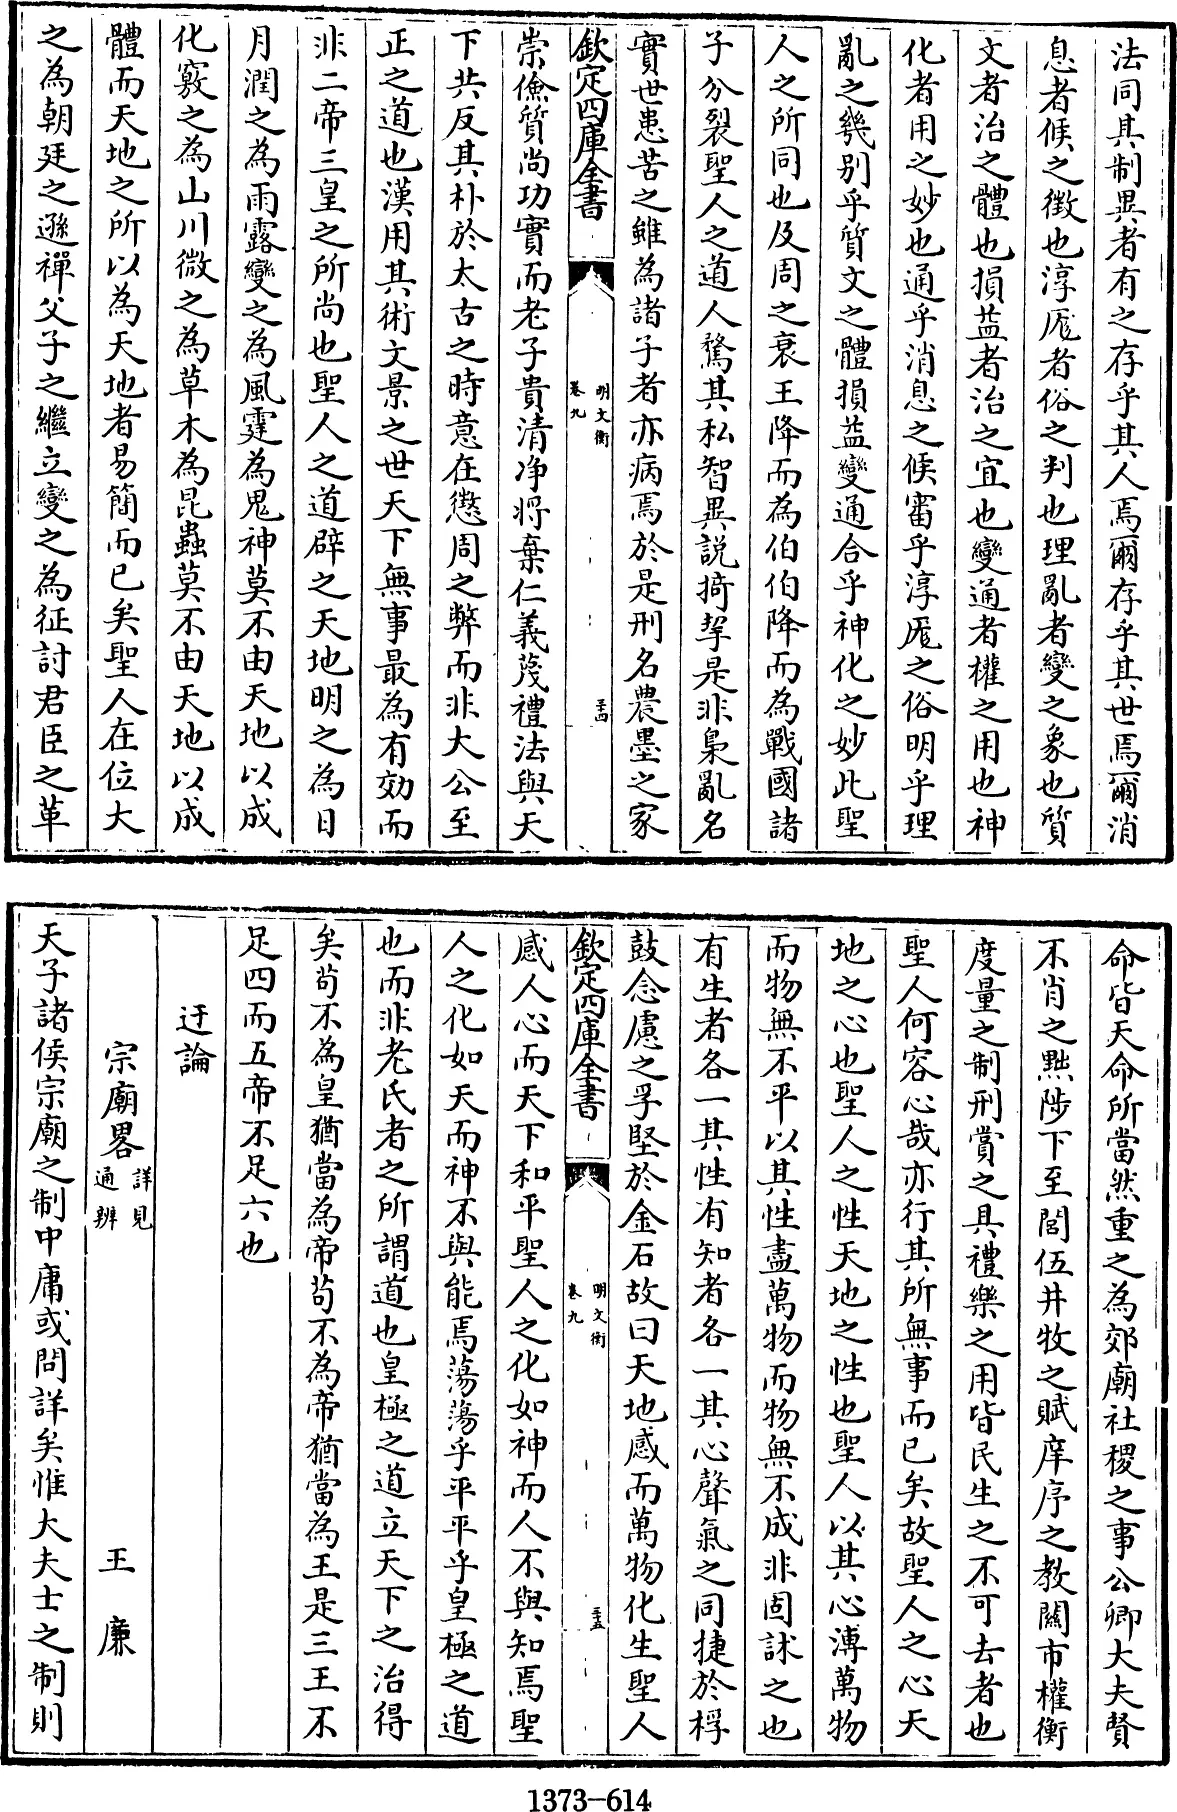 法同其制異者有之存乎其人焉爾存乎其世焉爾消
息者候之徵也淳厖者俗之判也理亂者變之象也質
文者治之體也損益者治之宜也變通者權之用也神
化者用之妙也通乎消息之候審乎淳厖之俗明乎理
亂之幾别乎質文之體損益變通合乎神化之妙此聖
人之所同也及周之衰王降而為伯伯降而為戰國諸
子分裂聖人之道人騖其私智異說掎挈是非梟亂名
實世患苦之雖為諸子者亦病焉於是刑名農墨之家
欽定四庫全書
明文衡
卷九
三十四
崇儉質尚功實而老子貴清浄將棄仁義蔑禮法與天
下共反其朴於太古之時意在懲周之弊而非大公至
正之道也漢用其術文景之世天下無事最為有効而
非二帝三皇之所尚也聖人之道辟之天地明之為日
月潤之為雨露變之為風霆為鬼神莫不由天地以成
化竅之為山川微之為草木為昆蟲莫不由天地以成
體而天地之所以為天地者易簡而已矣聖人在位大
之為朝廷之遜禪父子之繼立變之為征討君臣之革
命皆天命所當然重之為郊廟社稷之事公卿大夫賢
不肖之黜陟下至閭伍井牧之賦庠序之教關市權衡
度量之制刑賞之具禮樂之用皆民生之不可去者也
聖人何容心哉亦行其所無事而已矣故聖人之心天
地之心也聖人之性天地之性也聖人以其心溥萬物
而物無不平以其性盡萬物而物無不成非固訹之也
有生者各一其性有知者各一其心聲氣之同捷於桴
鼓念慮之孚堅於金石故曰天地感而萬物化生聖人
欽定四庫全書
明文衡
卷九
三十五
感人心而天下和平聖人之化如神而人不與知焉聖
人之化如天而神不與能焉蕩蕩乎平平乎皇極之道
也而非老氏者之所謂道也皇極之道立天下之治得
矣苟不為皇猶當為帝苟不為帝猶當為王是三王不
足四而五帝不足六也
迂論
宗廟畧 詳見通辨 王廉
天子諸侯宗廟之制中庸或問詳矣惟大夫士之制則
1373-614